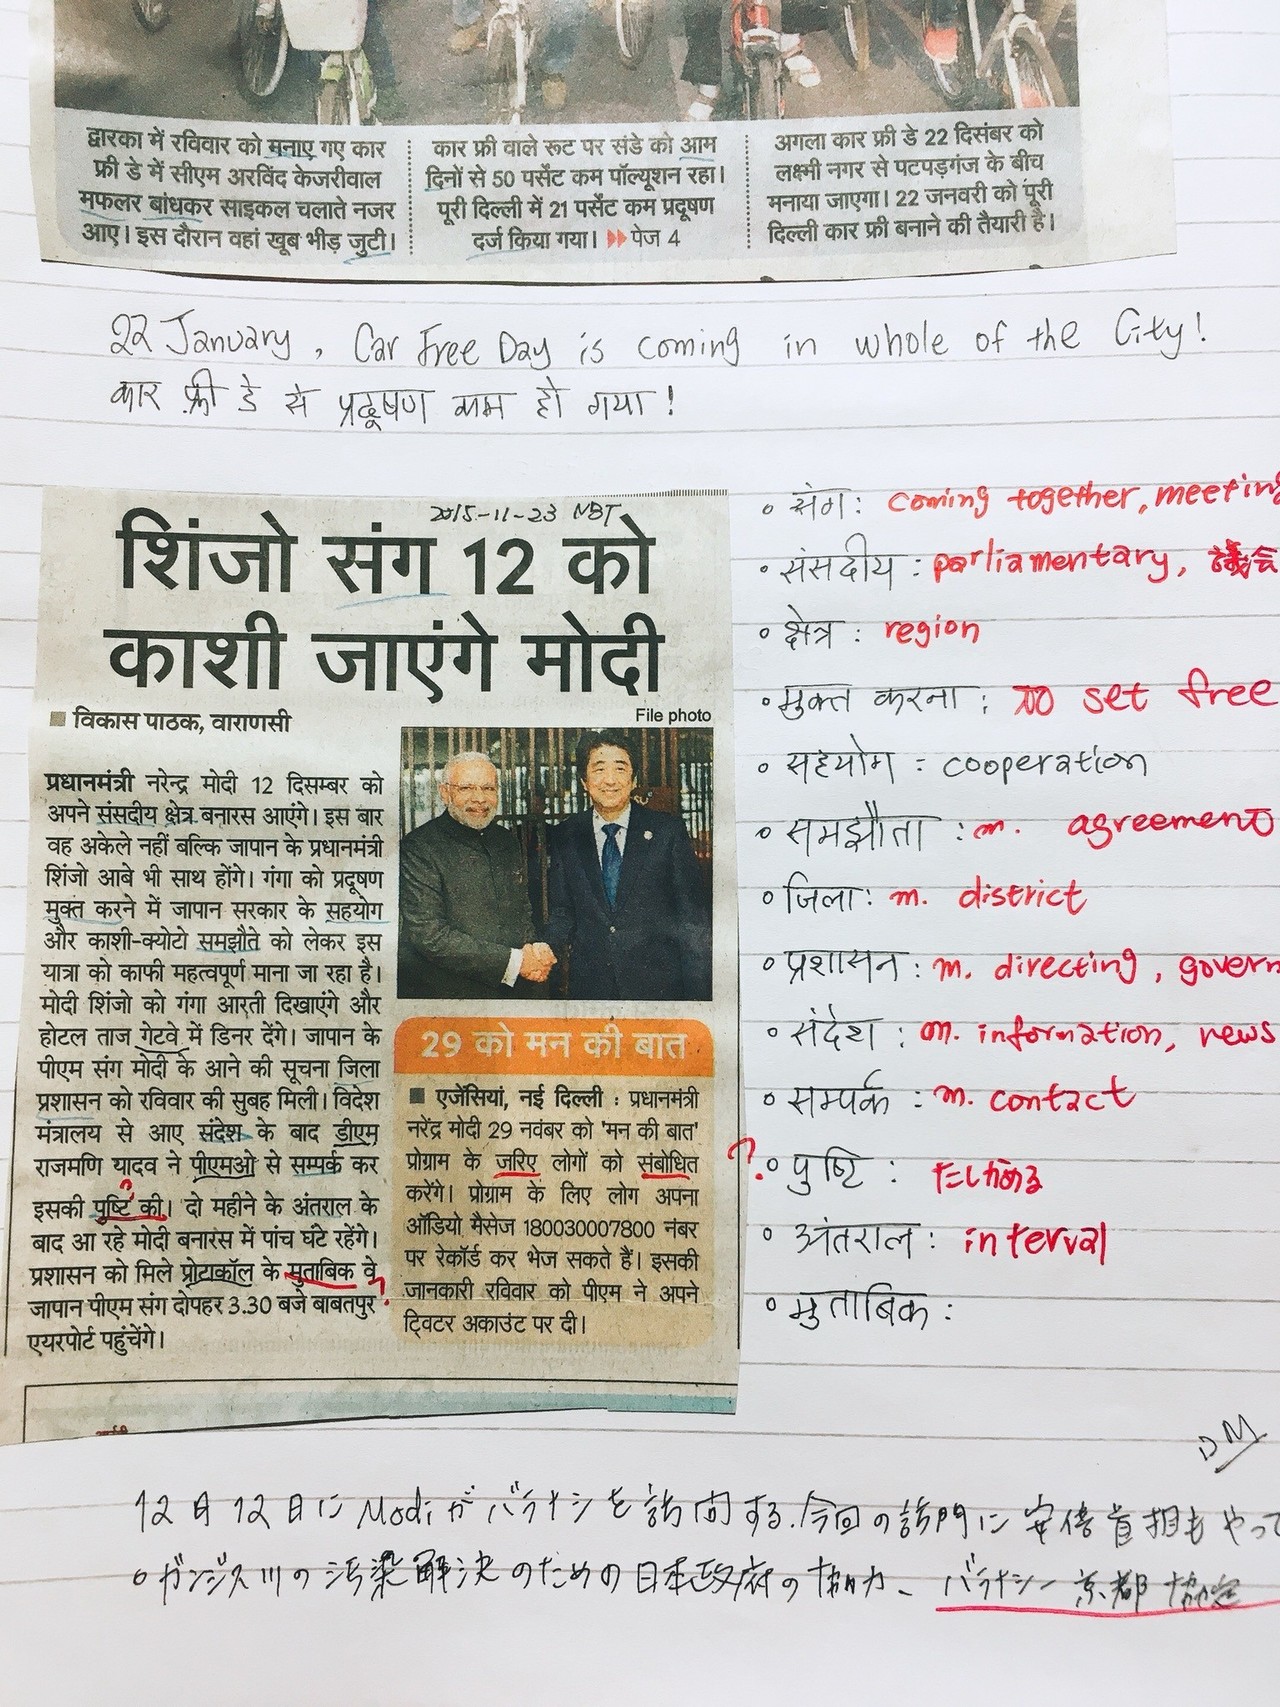 द्वारका में रविवार को मनाए गए कार
फ्री डे में सीएम अरविंद केजरीवाल
मफलर बांधकर साइकल चलाते नजर
आए। इस दौरान वहां खूब भीड़ जुटी।
कार फ्री वाले रूट पर संडे को आम
दिनों से 50 पर्सेंट कम पॉल्यूशन रहा।
पूरी दिल्ली में 21 पर्सेंट कम प्रदूषण
दर्ज किया गया। पेज 4
अगला कार फ्री डे 22 दिसंबर को
लक्ष्मी नगर से पटपड़गंज के बीच
मनाया जाएगा। 22 जनवरी को पूरी
दिल्ली कार फ्री बनाने की तैयारी है।
22 January, Car Free Day is coming in whole of the City!
कार फ्री डे से प्रदूषण कम हो गया!
2015-11-23 NBT
शिंजो संग 12 को
काशी जाएंगे मोदी
विकास पाठक, वाराणसी
File photo
प्रधानमंत्री नरेन्द्र मोदी 12 दिसम्बर को
अपने संसदीय क्षेत्र बनारस आएंगे। इस बार
वह अकेले नहीं बल्कि जापान के प्रधानमंत्री
शिंजो आबे भी साथ होंगे। गंगा को प्रदूषण
मुक्त करने में जापान सरकार के सहयोग
और काशी-क्योटो समझौते को लेकर इस
यात्रा को काफी महत्वपूर्ण माना जा रहा है।
मोदी शिंजो को गंगा आरती दिखाएंगे और
होटल ताज गेटवे में डिनर देंगे। जापान के
पीएम संग मोदी के आने की सूचना जिला
प्रशासन को रविवार की सुबह मिली। विदेश
मंत्रालय से आए संदेश के बाद डीएम
राजमणि यादव ने पीएमओ से सम्पर्क कर
इसकी पुष्टि की। दो महीने के अंतराल के
बाद आ रहे मोदी बनारस में पांच घंटे रहेंगे।
प्रशासन को मिले प्रोटाकॉल के मुताबिक वे
जापान पीएम संग दोपहर 3.30 बजे बाबतपुर
एयरपोर्ट पहुंचेंगे।
29 को मन की बात
एजेंसियां, नई दिल्ली : प्रधानमंत्री
नरेंद्र मोदी 29 नवंबर को 'मन की बात'
प्रोग्राम के जरिए लोगों को संबोधित
करेंगे। प्रोग्राम के लिए लोग अपना
ऑडियो मैसेज 180030007800 नंबर
पर रेकॉर्ड कर भेज सकते हैं। इसकी
जानकारी रविवार को पीएम ने अपने
ट्विटर अकाउंट पर दी।
संग: coming together, meeting
संसदीय : parliamentary, 議会
क्षेत्र : region
मुक्त करना : to set free
सहयोग : cooperation
समझौता : m. agreement
जिला : m. district
प्रशासन : m. directing, govern
संदेश : m. information, news
सम्पर्क : m. contact
? पुष्टि : たしかめる
अंतराल : interval
मुताबिक :
DM
12月12日にModiがバラナシを訪問する.今回の訪問に安倍首相もやって
ガンジス川の汚染解決のための日本政府の協力、バラナシー京都協定